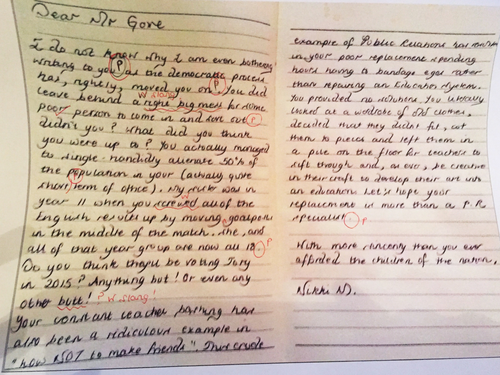 Dear Mr Gove
I do not know why I am even bothering
writing to you as the democratic process
has, rightly, moved you on. You did
leave behind a right big mess for some
poor person to come in and sort out
didn't you? What did you think
you were up to? You actually managed
to single-handidly alienate 50% of
the population in your (actually quite
short) term of office). My sister was in
year 11 when you screwed all of the
English results up by moving goalposts
in the middle of the match. She, and
all of that year group are now all 18.
Do you think they'll be voting Tory
in 2015? Anything but! Or even any
other butt!
Your constant teacher bashing has
also been a ridiculous example in
"how NOT to make friends". This crude
P
P
w slang
P
P
P
? w slang!
example of Public Relations has resulted
in your poor replacement spending
hours having to bandage egos rather
than repairing an Education System.
You provided no solutions. You literally
looked at a wardrobe of old clothes,
decided that they didn't fit, cut
them to pieces and left them in
a pile on the floor for teachers to
sift through and, as ever, be creative
in their craft to develop their art into
an education. Let's hope your
replacement is more than a P.R
specialist.
P
With more sincerity than you ever
afforded the children of the nation,
Nikki